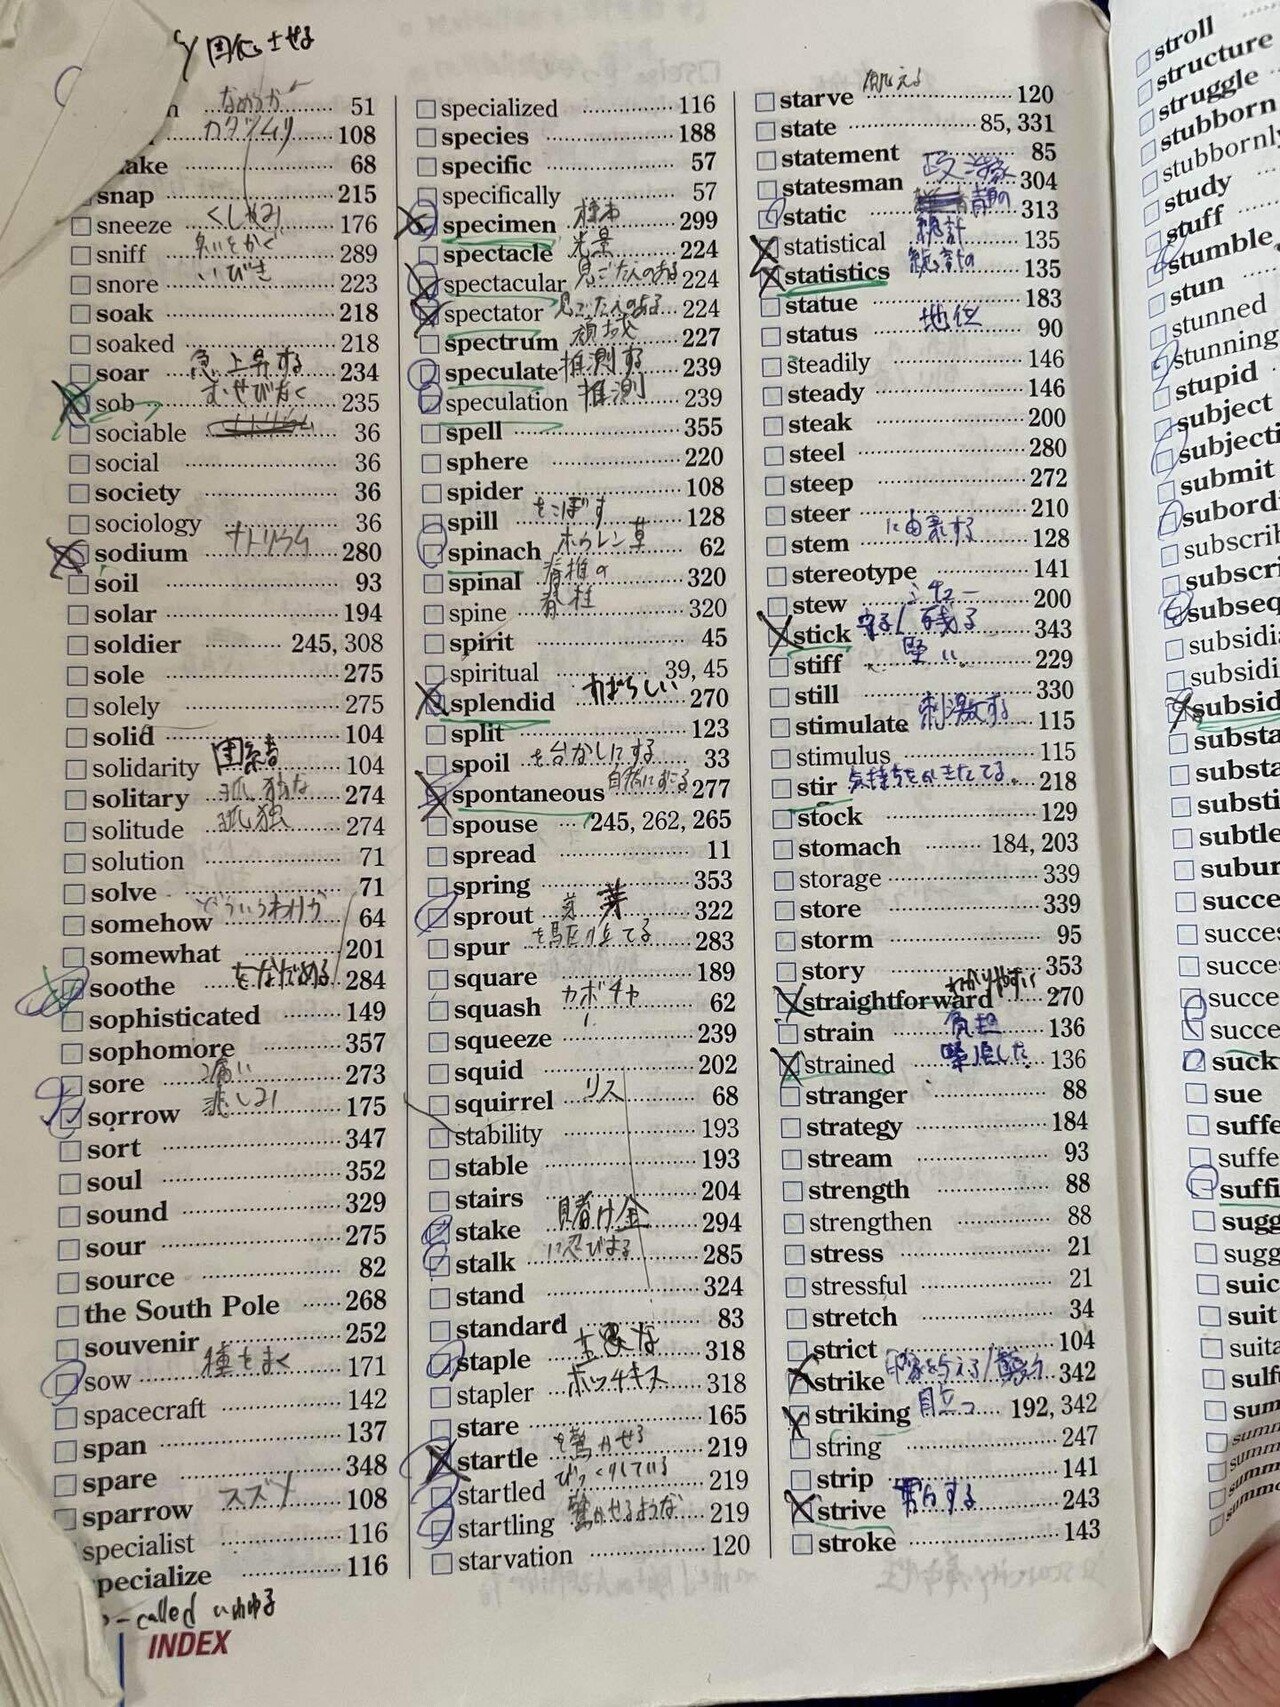 団結させる
なめらか 51
カタツムリ 108
68
snap 215
sneeze くしゃみ 176
sniff 臭いをかぐ 289
snore いびき 223
soak 218
soaked 218
soar 急上昇する 234
sob むせびなく 235
sociable 36
social 36
society 36
sociology 36
sodium ナトリウム 280
soil 93
solar 194
soldier 245, 308
sole 275
solely 275
solid 104
solidarity 104
solitary 孤独な 274
solitude 孤独 274
solution 71
solve 71
somehow どういうわけか 64
somewhat 201
soothe をなだめる 284
sophisticated 149
sophomore 357
sore 痛い 273
sorrow 悲しみ 175
sort 347
soul 352
sound 329
sour 275
source 82
the South Pole 268
souvenir 252
sow 種をまく 171
spacecraft 142
span 137
spare 348
sparrow スズメ 108
specialist 116
specialize 116
so-called いわゆる
INDEX
specialized 116
species 188
specific 57
specifically 57
specimen 標本 299
spectacle 光景 224
spectacular 見ごたえのある 224
spectator 見ごたえのある 224
spectrum 領域 227
speculate 推測する 239
speculation 推測 239
spell 355
sphere 220
spider 108
spill をこぼす 128
spinach ホウレン草 62
spinal 脊椎の 320
spine 脊柱 320
spirit 45
spiritual 39, 45
splendid すばらしい 270
split 123
spoil を台なしにする 33
spontaneous 277
spouse 245, 262, 265
spread 11
spring 353
sprout 芽 芽 322
spur を駆り立てる 283
square 189
squash カボチャ 62
squeeze 239
squid 202
squirrel リス 68
stability 193
stable 193
stairs 204
stake 賭け金 294
stalk に忍びよる 285
stand 324
standard 83
staple 主要な 318
stapler ホッチキス 318
stare 165
startle を驚かせる 219
startled びっくりしている 219
startling 驚かせるような 219
starvation 120
starve 飢える 120
state 85, 331
statement 85
statesman 政治家 304
static 313
statistical 統計 135
statistics 統計の 135
statue 183
status 地位 90
steadily 146
steady 146
steak 200
steel 280
steep 272
steer 210
stem に由来する 128
stereotype 141
stew シチュー 200
stick 343
stiff 堅い 229
still 330
stimulate 刺激する 115
stimulus 115
stir 気持ちをかきたてる 218
stock 129
stomach 184, 203
storage 339
store 339
storm 95
story 353
straightforward わかりやすい 270
strain 負担 136
strained 緊張した 136
stranger 88
strategy 184
stream 93
strength 88
strengthen 88
stress 21
stressful 21
stretch 34
strict 104
strike 342
striking 目立つ 192, 342
string 247
strip 141
strive 努力する 243
stroke 143
stroll
structure
struggle
stubborn
stubbornly
study
stuff
stumble
stun
stunned
stunning
stupid
subject
submit
suck
sue
suit